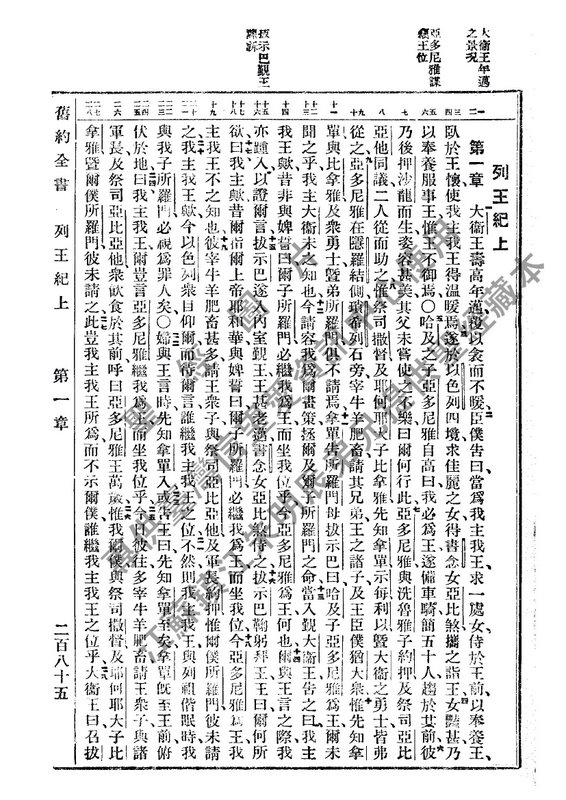 大衞王年邁
之景況
亞多尼雅謀
簒王位
拔示巴覲王
陳訴
列王紀上
第一章　大衞王壽高年邁、覆以衾而不暖、臣僕告曰、當爲我主我王求一處女、侍於王前、以奉養王、
臥於王懷、使我主我王得温暖焉、遂於以色列四境、求佳麗之女、得書念女亞比煞、攜之詣王、女豔甚、乃
以奉養服事王、惟王不御焉、〇哈及之子亞多尼雅自高曰、我必爲王、遂備車騎、簡五十人、趨於其前、彼
乃後押沙龍而生、姿容甚美、其父未嘗使之不樂曰、爾何行此、亞多尼雅與洗魯雅子約押、及祭司亞比
亞他同議、二人從而助之、惟祭司撒督、及耶何耶大子比拿雅、先知拿單、示每利以、曁大衞之勇士、皆弗
從之、亞多尼雅在隱羅結側、瑣希列石旁、宰牛羊肥畜、請其兄弟王之諸子、及王臣僕猶大衆、惟先知拿
單與比拿雅、及衆勇士、曁弟所羅門不請焉、拿單告所羅門母拔示巴曰、哈及子亞多尼雅爲王、爾未
聞之乎、我主大衞未之知也、今請容我爲爾畫策、拯爾及爾子所羅門之命、當入覲大衞王、告之曰、我主
我王歟、昔非與婢誓曰、爾子所羅門必繼我爲王、而坐我位乎、今亞多尼雅爲王何也、爾與王言之際、我
亦踵入、以證爾言、拔示巴遂入內室覲王、王甚老邁、書念女亞比煞侍之、拔示巴鞠躬拜王、王曰、爾何所
欲、曰、我主歟、昔爾指爾上帝耶和華與婢誓曰、爾子所羅門必繼我爲王、而坐我位、今亞多尼雅爲王、我
主我王不之知也、彼宰牛羊肥畜甚多、請王衆子、與祭司亞比亞他、及軍長約押、惟爾僕所羅門、彼未請
之、我主我王歟、今以色列衆目仰爾、而待爾言、誰繼我主我王之位、不然、則我主我王與列祖偕眠時、我
與我子所羅門必視爲罪人矣、〇婦與王言時、先知拿單入、或告王曰、先知拿單至矣、拿單旣至王前、俯
伏於地曰、我主我王、爾豈言亞多尼雅繼我爲王而坐我位乎、今日彼往、多宰牛羊肥畜、請王衆子、與諸
軍長、及祭司亞比亞他、衆飲食於其前、呼曰、亞多尼雅王萬歲、惟我爾僕、與祭司撒督、及耶何耶大子比
拿雅、曁爾僕所羅門、彼未請之、此豈我主我王所爲、而不示爾僕、誰繼我主我王之位乎、大衞王曰、召拔
舊約全書　列王紀上　第一章　二百八十五